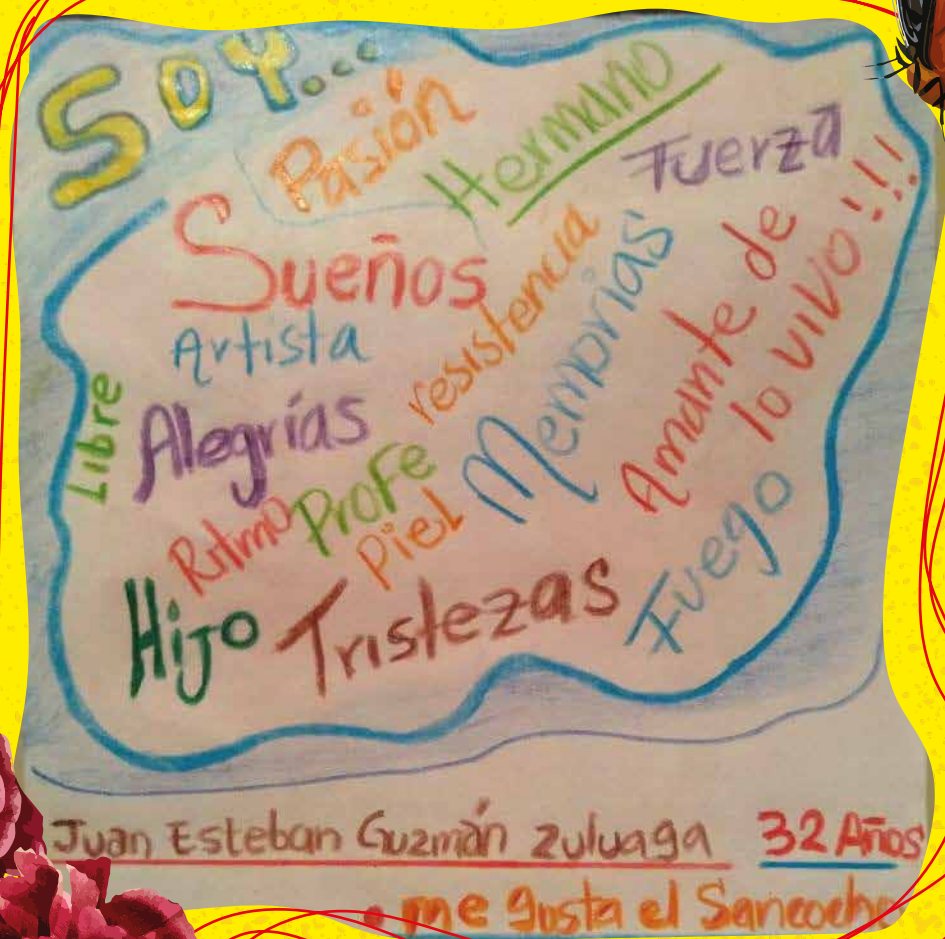 SOY...
Pasión
Hermano
Fuerza
Sueños
resistencia
Memorias
Amante de
lo vivo!!!
Artista
Libre
Alegrías
Ritmo
Profe
Piel
Fuego
Hijo
Tristezas
Juan Esteban Guzmán Zuluaga 32 Años
me gusta el Sancocho